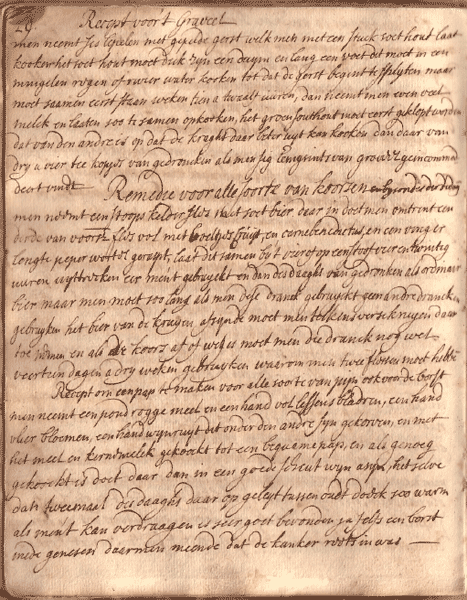 29 Recept voor't Graveel
men neemt ses lepelen met gepelde gerst welk men met een stuck soet hout laat
kooken het soet hout moet dick zijn een duijm en lang een voet dit moet in een
mingelen regen of rivier water kooken tot dat de gerst begint te splijten maar
moet saamen eerst staan weeken tien a twaalf uuren, dan neemt men even veel
melck en laaten soo te samen opkooken, het groen soethout moet eerst geklopt worden
dat van den andre is op dat de kraght daar beter uyt kan kooken dan daar van
dry a vier tee kopjes van gedroncken als men sig van graveel geincommo
deert vindt
Remedie voor alle soorte van koorsen
men neemt een stoops kelder fles met soet bier daar in doet men omtrent een
derde van voors: fles vol met en cardebenedictus, en een vinger
lengte peper wortel geraspt, laat dit samen bij't vier of op een stoof vier en twintig
uuren uyttrecken eer men't gebruyckt en dan des daeghs van gedroncken als ordinair
bier maar men moet soo lang als men dese dranck gebruyckt geen andre drancken
gebruyken het bier van de kruyen afsynde moet men telkens vers kruyen daar
toe nemen en als de koors af of weg is moet men die dranck nog wel
veertien dagen a dry weken gebruyken waarom men twee flessen moet hebbe
Recept om een pap te maken voor alle soorte van pijn ook voor de borst
men neemt een pond rogge meel en een hand vol bladeren, een hand
vlier bloemen, een hand wynruyt dit onder den andre fyn gekorven, en met
het meel en kernemelck gekoockt tot een bequame pap, en als genoeg
gekoockt is doet daar dan in een goede scheut wyn asyn, het selve
dan tweemaal des daeghs daar op geleyt tussen oudt doeck soo warm
als men't kan verdraagen is seer goet bevonden ja selfs een borst
mede genesen daar men meende dat de kanker reets in was —